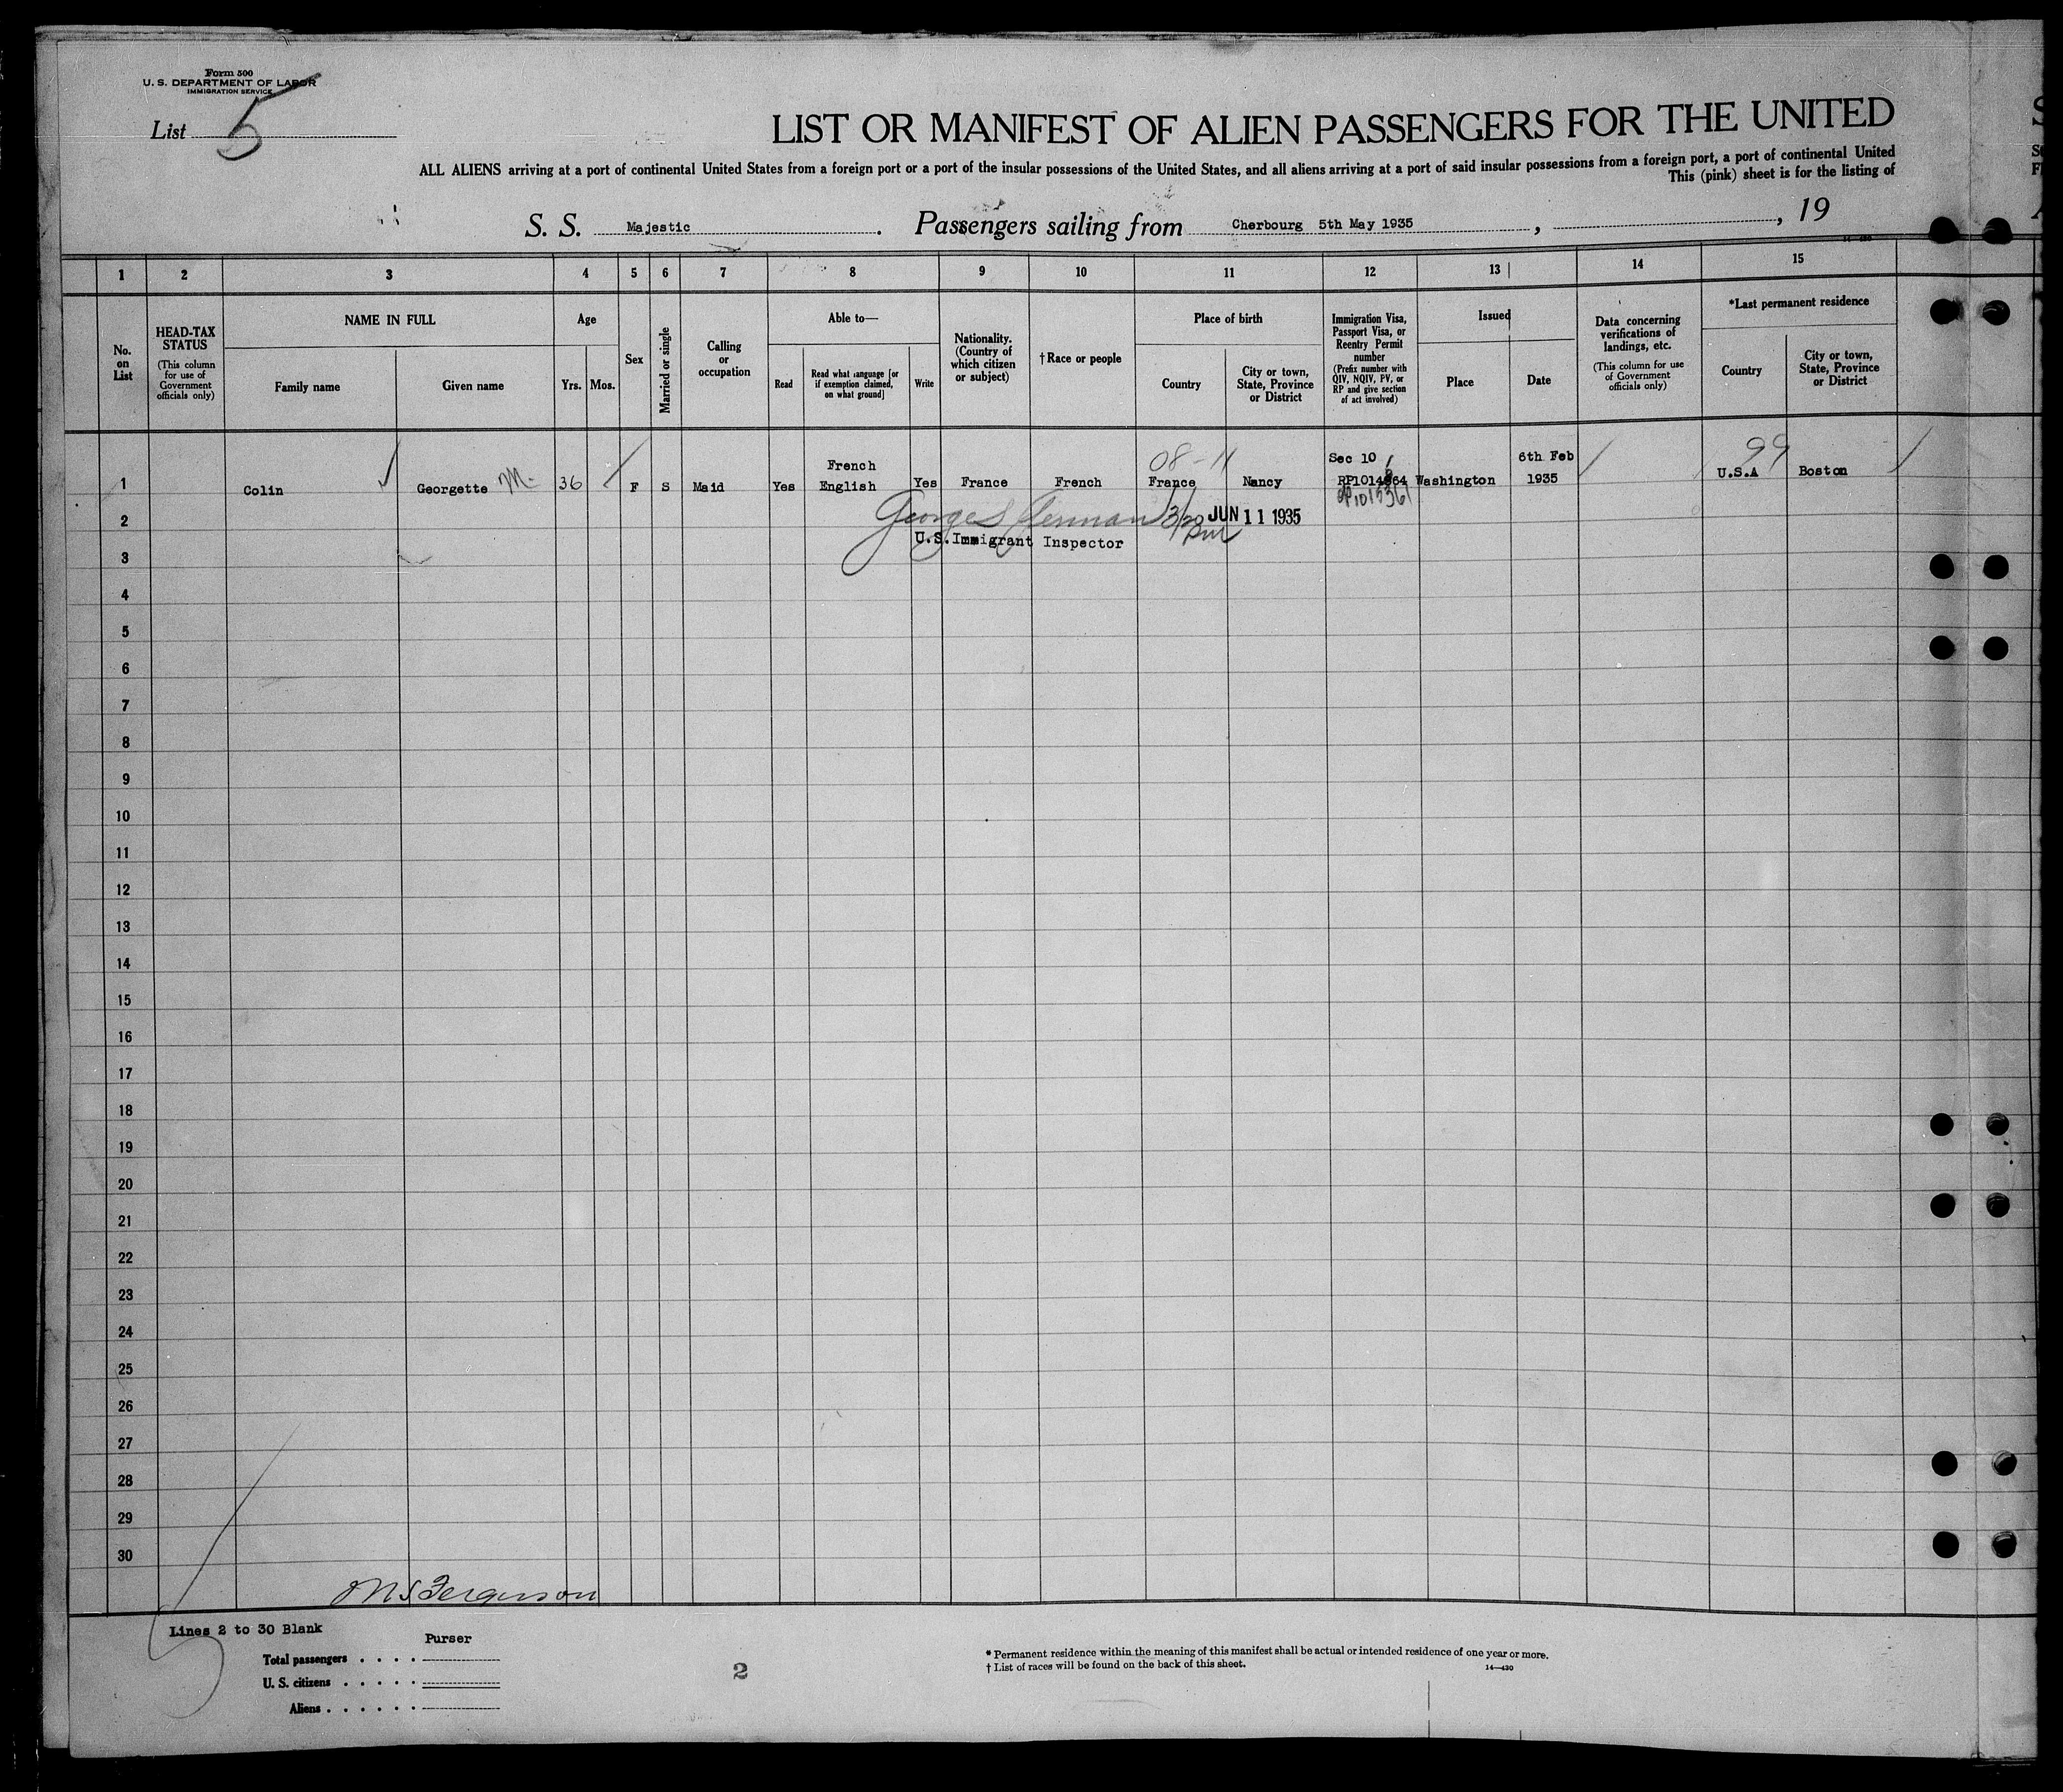 Form 500
U. S. DEPARTMENT OF LABOR
IMMIGRATION SERVICE
List 5
LIST OR MANIFEST OF ALIEN PASSENGERS FOR THE UNITED
ALL ALIENS arriving at a port of continental United States from a foreign port or a port of the insular possessions of the United States, and all aliens arriving at a port of said insular possessions from a foreign port, a port of continental United
This (pink) sheet is for the listing of
S. S. Majestic . Passengers sailing from Cherbourg 5th May 1935 , , 19
1 2 3 4 5 6 7 8 9 10 11 12 13 14 15
No. on List
HEAD-TAX STATUS
(This column for use of Government officials only)
NAME IN FULL
Family name
Given name
Age
Yrs.
Mos.
Sex
Married or single
Calling or occupation
Able to—
Read
Read what language [or if exemption claimed, on what ground]
Write
Nationality. (Country of which citizen or subject)
†Race or people
Place of birth
Country
City or town, State, Province or District
Immigration Visa, Passport Visa, or Reentry Permit number
(Prefix number with QIV, NQIV, PV, or RP and give section of act involved)
Issued
Place
Date
Data concerning verifications of landings, etc.
(This column for use of Government officials only)
*Last permanent residence
Country
City or town, State, Province or District
French 08-11 Sec 10 6th Feb 99
1 Colin Georgette M. 36 F S Maid Yes English Yes France French France Nancy Washington 1935 U.S.A Boston
2 JUN 11 1935
U.S. Immigrant Inspector
3
4
5
6
7
8
9
10
11
12
13
14
15
16
17
18
19
20
21
22
23
24
25
26
27
28
29
30
Ferguson
Lines 2 to 30 Blank
Purser
Total passengers . . . .
U. S. citizens . . . . .
Aliens . . . . . .
2
* Permanent residence within the meaning of this manifest shall be actual or intended residence of one year or more.
† List of races will be found on the back of this sheet.
14—430